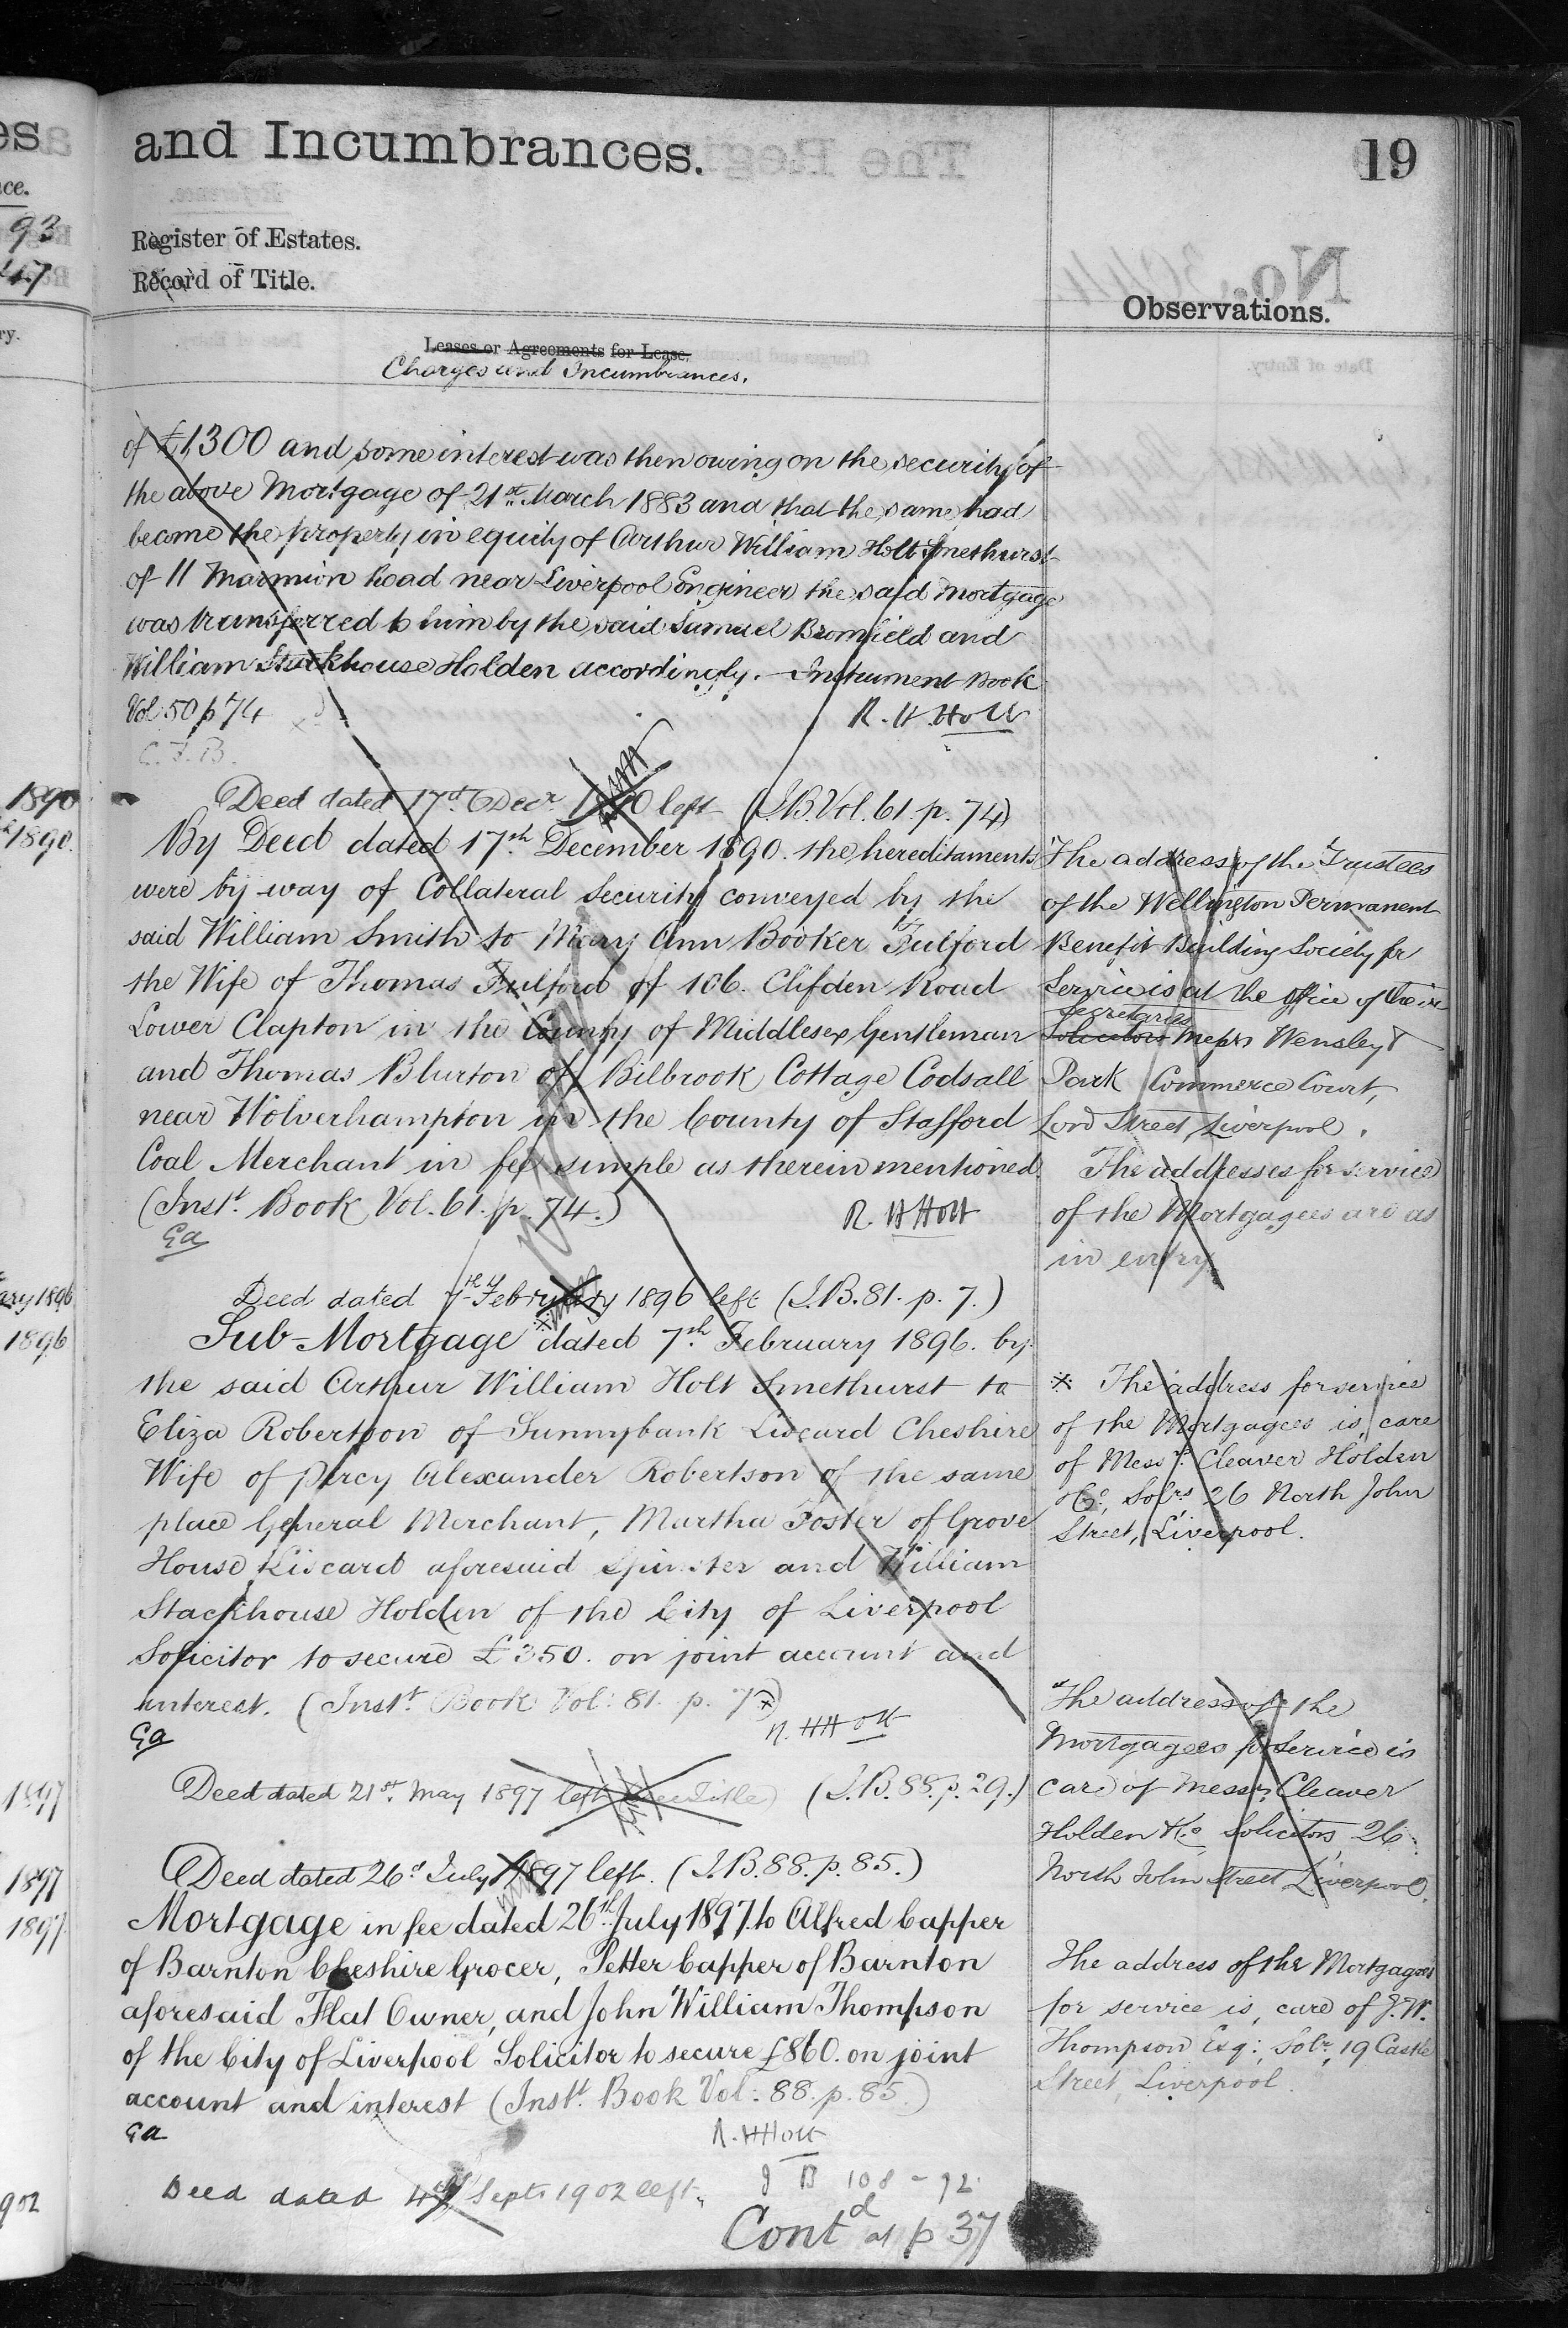 and Incumbrances.
19
Register of Estates.
Record of Title.
Observations.
Leases or Agreements for Lease.
Charges and Incumbrances.
of £1300 and some interest was then owing on the security of
the above Mortgage of 21st March 1883 and that the same had
become the property in equity of Arthur William Holt Smethurst
of 11 Marmion Road near Liverpool Engineer the said Mortgage
was transferred to him by the said Samuel Bromfield and
William Stackhouse Holden accordingly. Instrument Book
Vol: 50 p 74
R. H. Holt
C.F.B.
Deed dated 17th Decr 1890 left (I.B. Vol. 61 p. 74)
By Deed dated 17th December 1890. the hereditaments
were by way of Collateral Security conveyed by the
said William Smith to Mary Ann Booker Fulford
the Wife of Thomas Fulford of 106. Clifden Road
Lower Clapton in the County of Middlesex Gentleman
and Thomas Blurton of Bilbrook Cottage Codsall
near Wolverhampton in the County of Stafford
Coal Merchant in fee simple as therein mentioned.
(Instt. Book Vol. 61. p. 74.)
R. H Holt
Ga
The address of the Trustees
of the Wellington Permanent
Benefit Building Society for
Service is at the office of their
Secretaries
Solicitors Messrs Wensley &
Park Commerce Court,
Lord Street, Liverpool.
The addresses for service
of the Mortgagees are as
in entry
Deed dated 7th February 1896 left (I.B. 81. p. 7.)
Sub-Mortgage dated 7th February 1896. by
the said Arthur William Holt Smethurst to
Eliza Robertson of Sunnybank Liscard Cheshire
Wife of Percy Alexander Robertson of the same
place General Merchant, Martha Foster of Grove
House Liscard aforesaid Spinster and William
Stackhouse Holden of the City of Liverpool
Solicitor to secure £350. on joint account and
interest. (Instt. Book Vol: 81. p. 7)
R. H Holt
Ga
※ The address for service
of the Mortgagees is, care
of Messrs. Cleaver Holden
& Co., Solrs, 26 North John
Street, Liverpool.
Deed dated 21st May 1897 left (I.B. 88. p. 29.)
The address of the
Mortgagees for Service is
care of Messrs Cleaver
Holden & Co Solicitors 26
North John Street Liverpool.
Deed dated 26th July 1897 left. (I.B. 88. p. 85.)
Mortgage in fee dated 26th July 1897 to Alfred Capper
of Barnton Cheshire Grocer, Petter Capper of Barnton
aforesaid Flat Owner, and John William Thompson
of the City of Liverpool Solicitor to secure £860. on joint
account and interest (Instt. Book Vol: 88. p. 85.)
Ga
R. H Holt
The address of the Mortgagees
for service is, care of J. W.
Thompson Esq: Solr, 19 Castle
Street, Liverpool.
Deed dated 4th Septr 1902 left.
I B 108 - 92
Contd at p 37
93
1890
1890.
1896
1896
1897
1897
1897
902